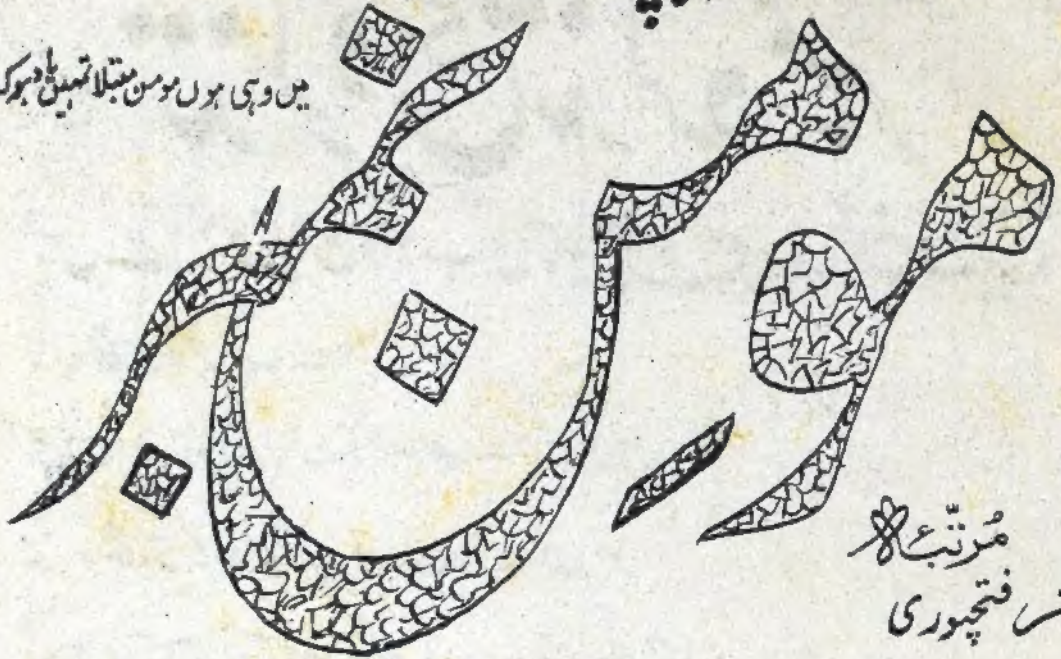 میں وہی ہوں مومن مبتلا تمہیں یاد ہو کہ
مومن نمبر
مُرتّبہ
فتحپوری